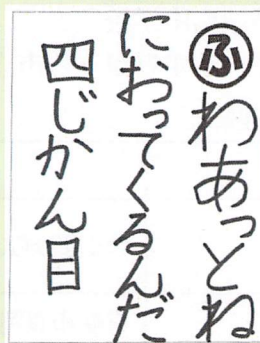 ふわあっとね
におってくるんだ
四じかん目